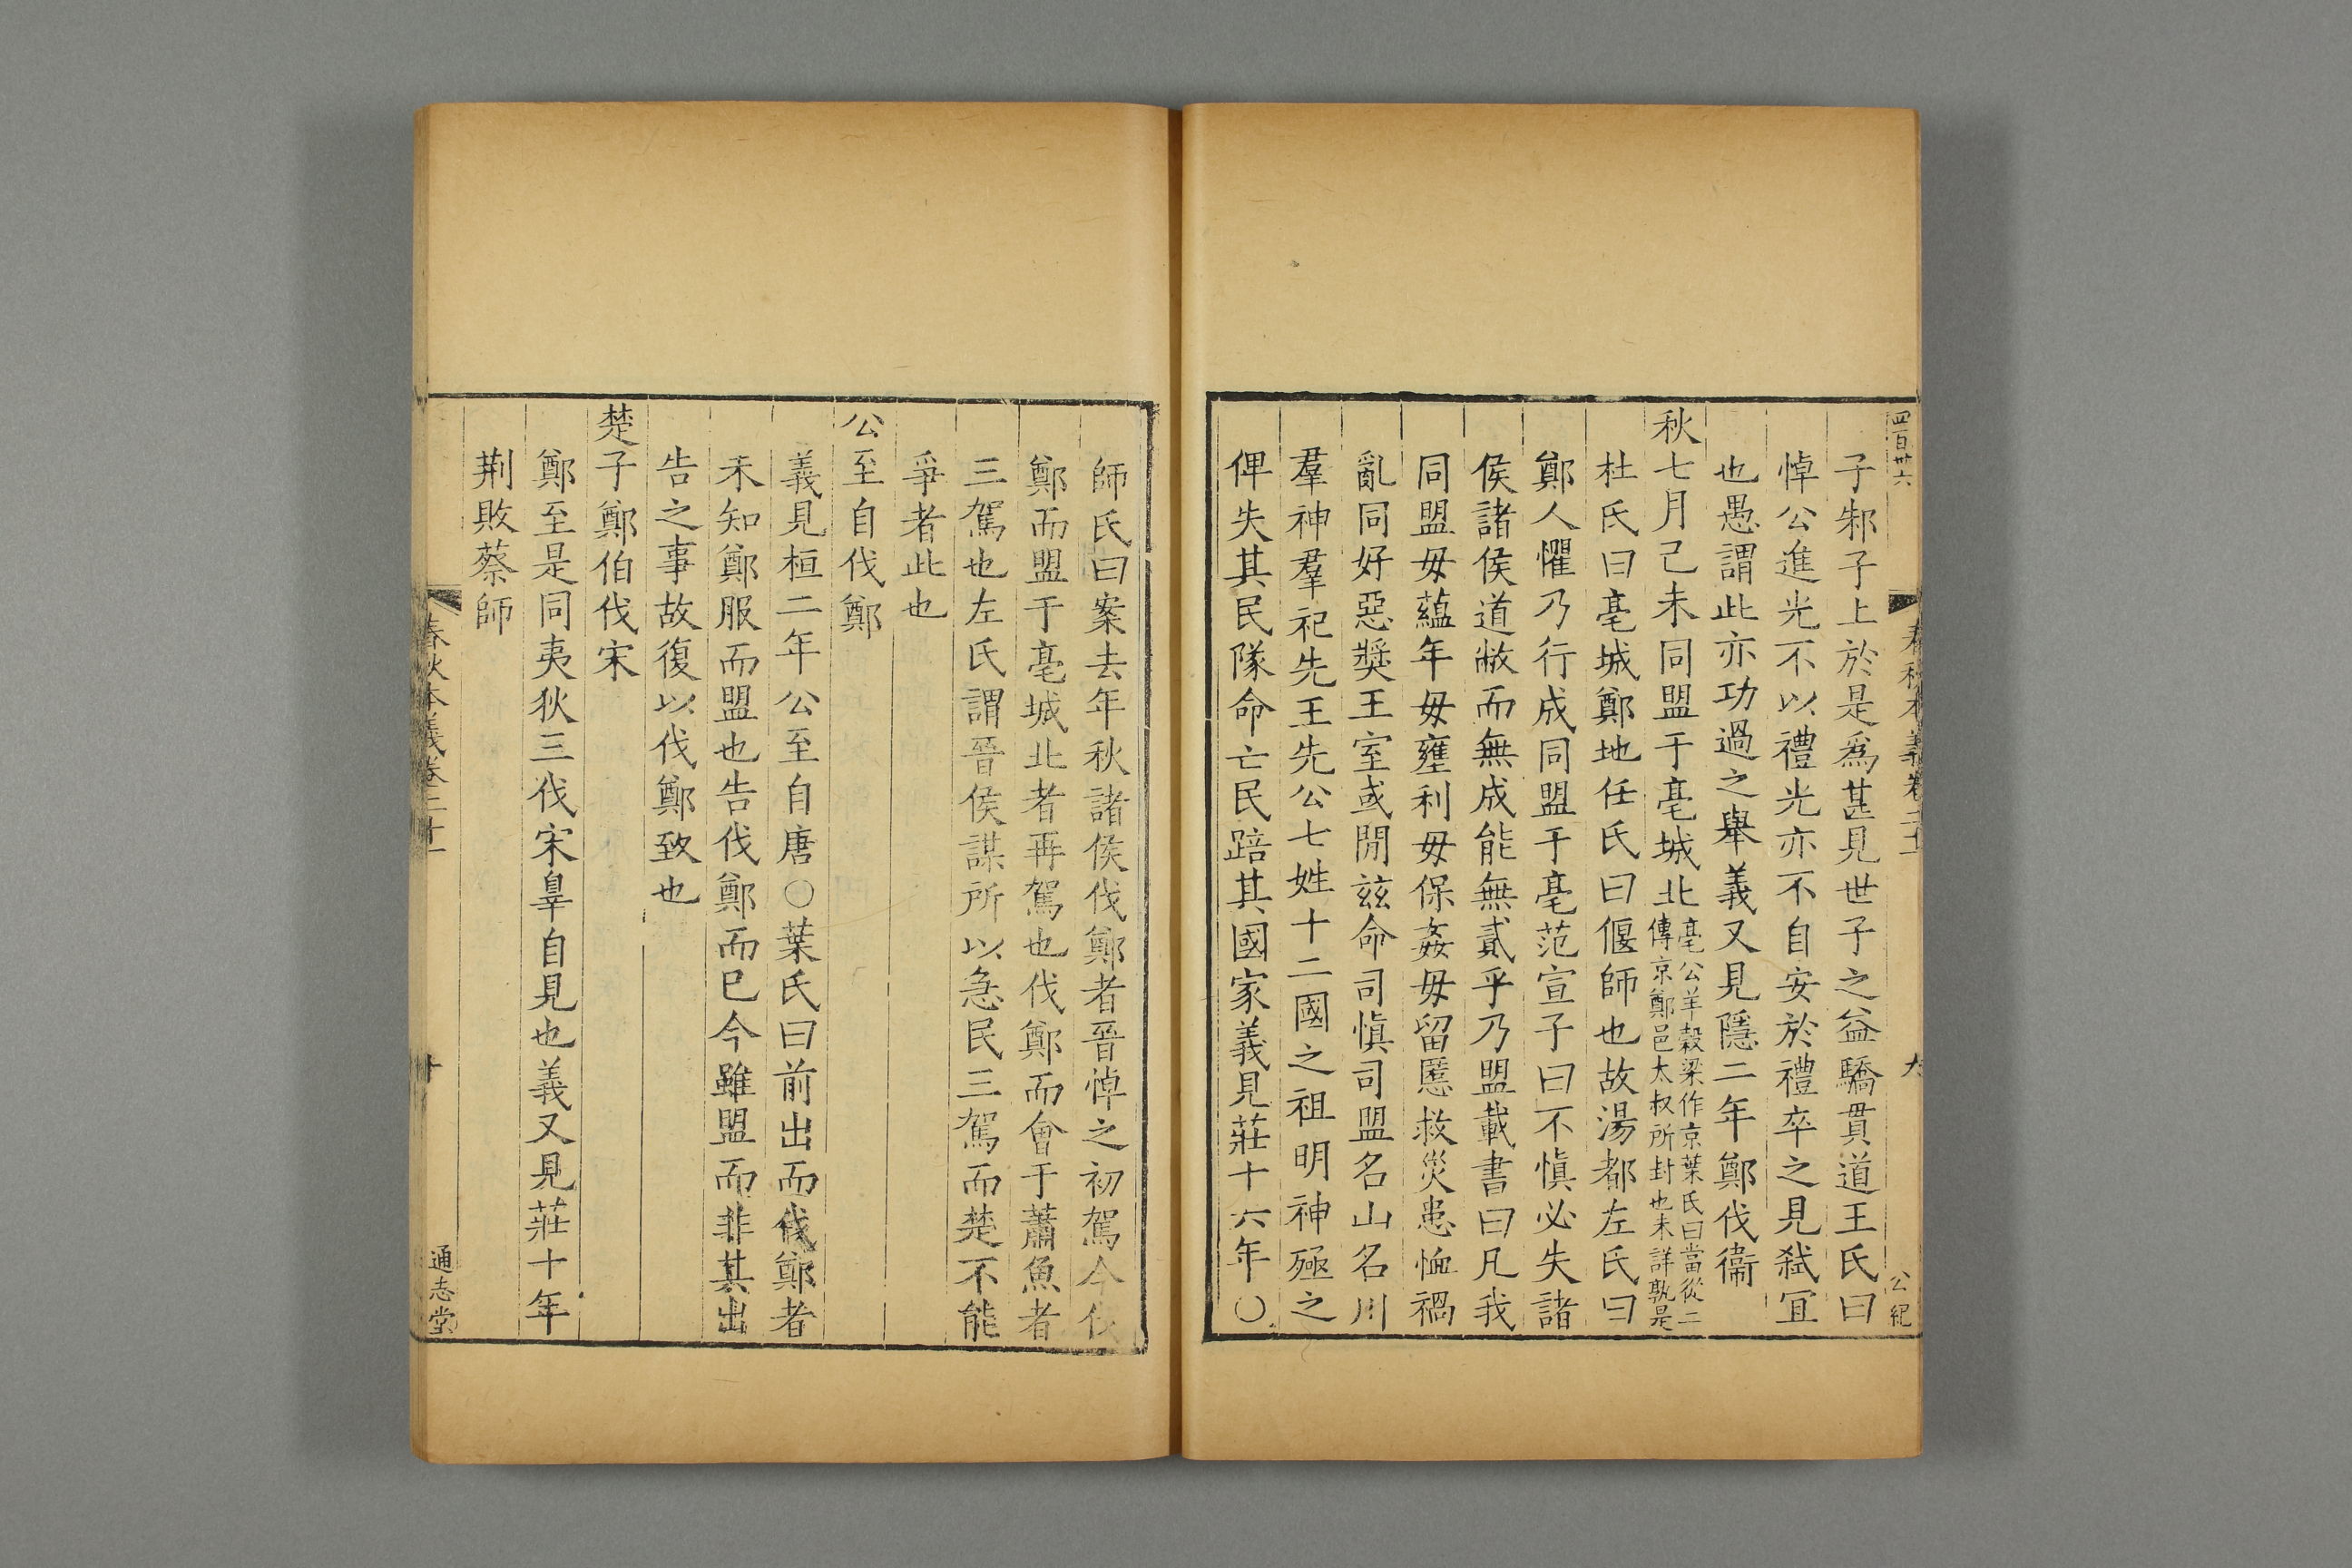 四百卅六
春秋本義卷二十一
九
公紀
子邾子上於是爲甚見世子之益驕貫道王氏曰
悼公進光不以禮光亦不自安於禮卒之見弒宜
也愚謂此亦功過之舉義又見隱二年鄭伐衞
秋七月己未同盟于亳城北亳公羊穀梁作京葉氏曰當從二
傳京鄭邑太叔所封也未詳孰是
杜氏曰亳城鄭地任氏曰偃師也故湯都左氏曰
鄭人懼乃行成同盟于亳范宣子曰不愼必失諸
侯諸侯道敝而無成能無貳乎乃盟載書曰凡我
同盟毋蘊年毋壅利毋保姦毋留慝救災患恤禍
亂同好惡獎王室或閒玆命司愼司盟名山名川
羣神羣祀先王先公七姓十二國之祖明神殛之
俾失其民隊命亡民踣其國家義見莊十六年〇
師氏曰案去年秋諸侯伐鄭者晉悼之初駕今伐
鄭而盟于亳城北者再駕也伐鄭而會于蕭魚者
三駕也左氏謂晉侯謀所以急民三駕而楚不能
爭者此也
公至自伐鄭
義見桓二年公至自唐〇葉氏曰前出而伐鄭者
未知鄭服而盟也告伐鄭而已今雖盟而非其出
告之事故復以伐鄭致也
楚子鄭伯伐宋
鄭至是同夷狄三伐宋辠自見也義又見莊十年
荆敗蔡師
春秋本義卷二十一
十
通志堂